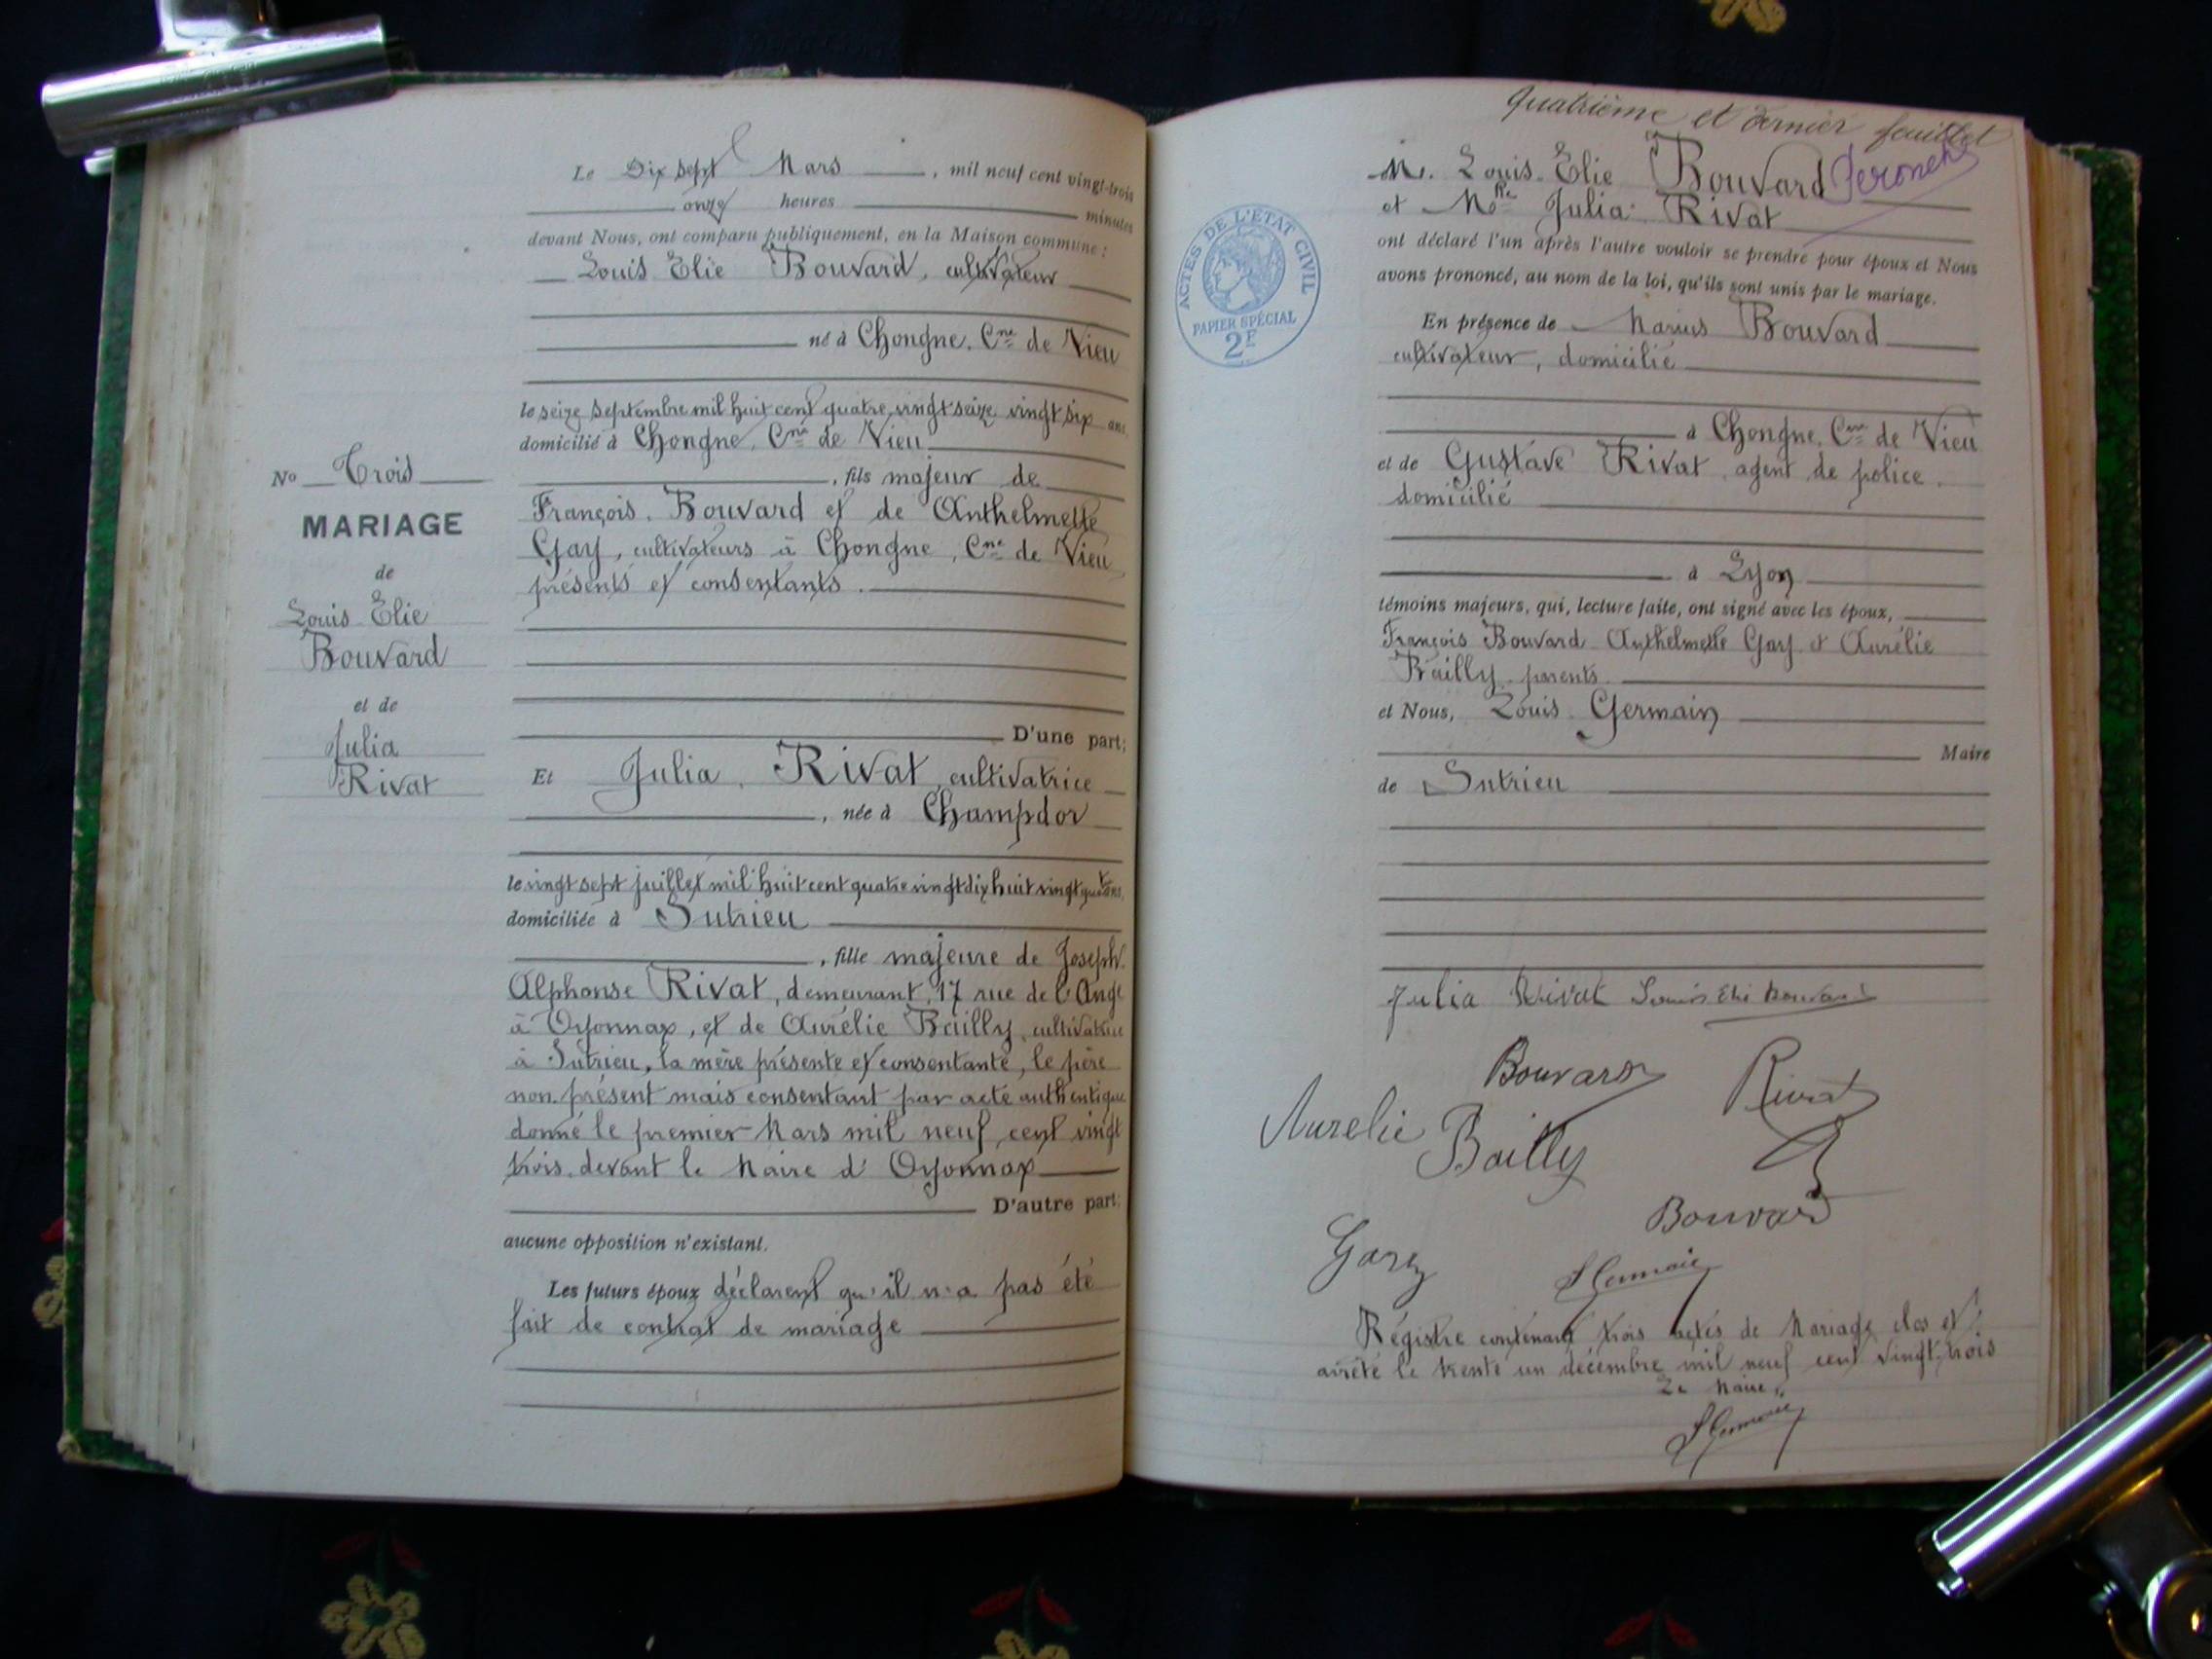 Le Dix sept Mars, mil neuf cent vingt-trois
onze heures minutes
devant Nous, ont comparu publiquement, en la Maison commune :
Louis Elie Bouvard, cultivateur
né à Chongne, Cne de Vieu
le seize septembre mil huit cent quatre vingt seize vingt six ans
domicilié à Chongne, Cne de Vieu
, fils majeur de
François Bouvard et de Anthelmette
Gay, cultivateurs à Chongne, Cne de Vieu
présents et consentants.
No Trois
MARIAGE
de
Louis Elie
Bouvard
et de
Julia
Rivat
D'une part;
Et Julia Rivat, cultivatrice
, née à Champdor
le vingt sept juillet mil huit cent quatre vingt dix huit vingt quatre ans,
domiciliée à Sutrieu
, fille majeure de Joseph
Alphonse Rivat, demeurant, 17 rue de l'Ange
à Oyonnax, et de Aurélie Bailly, cultivatrice
à Sutrieu, la mère présente et consentante, le père
non présent mais consentant par acte authentique
donné le premier Mars mil neuf cent vingt
trois devant le Maire d'Oyonnax
D'autre part;
aucune opposition n'existant.
Les futurs époux déclarent qu'il n'a pas été
fait de contrat de mariage
Quatrième et dernier feuillet
M. Louis Elie Bouvard
et Mlle Julia Rivat
ont déclaré l'un après l'autre vouloir se prendre pour époux et Nous
avons prononcé, au nom de la loi, qu'ils sont unis par le mariage.
ACTES DE L'ÉTAT CIVIL
PAPIER SPÉCIAL
2F
En présence de Marius Bouvard
cultivateur, domicilié
à Chongne, Cne de Vieu
et de Gustave Rivat, agent de police
domicilié
à Lyon
témoins majeurs, qui, lecture faite, ont signé avec les époux,
François Bouvard Anthelmette Gay & Aurélie
Bailly parents
et Nous, Louis Germain
Maire
de Sutrieu
Julia Rivat Louis Elie Bouvard
Bouvard Rivat
Aurelie Bailly
Bouvard
Gay
L Germain
Régistre contenant trois actes de Mariage clos et
arrêté le trente un décembre mil neuf cent vingt-trois
Le Maire,
L Germain